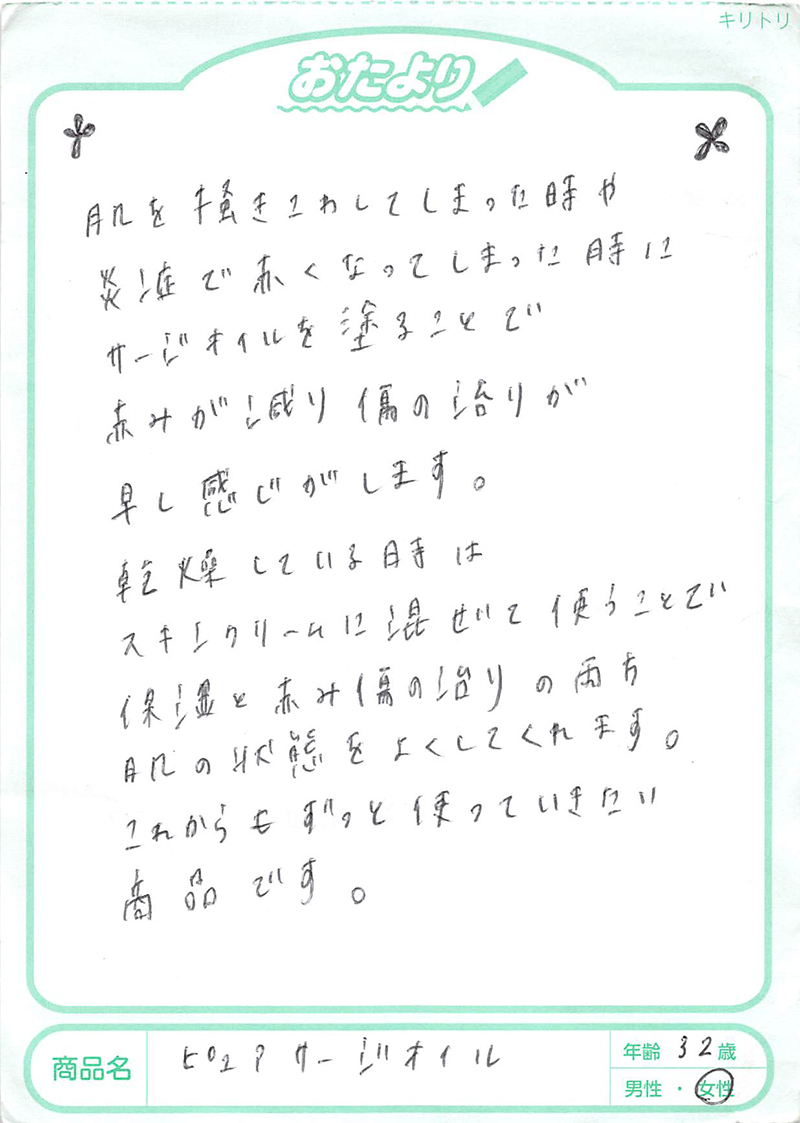 キリトリ
おたより
肌を掻きこわしてしまった時や
炎症で赤くなってしまった時に
サージオイルを塗ることで
赤みが減り傷の治りが
早し感じがします。
乾燥している時は
スキンクリームに混ぜて使うことで
保湿と赤み傷の治りの両方
肌の状態をよくしてくれます。
これからもずっと使っていきたい
商品です。
商品名 ピュアサージオイル
年齢 32歳
男性・女性